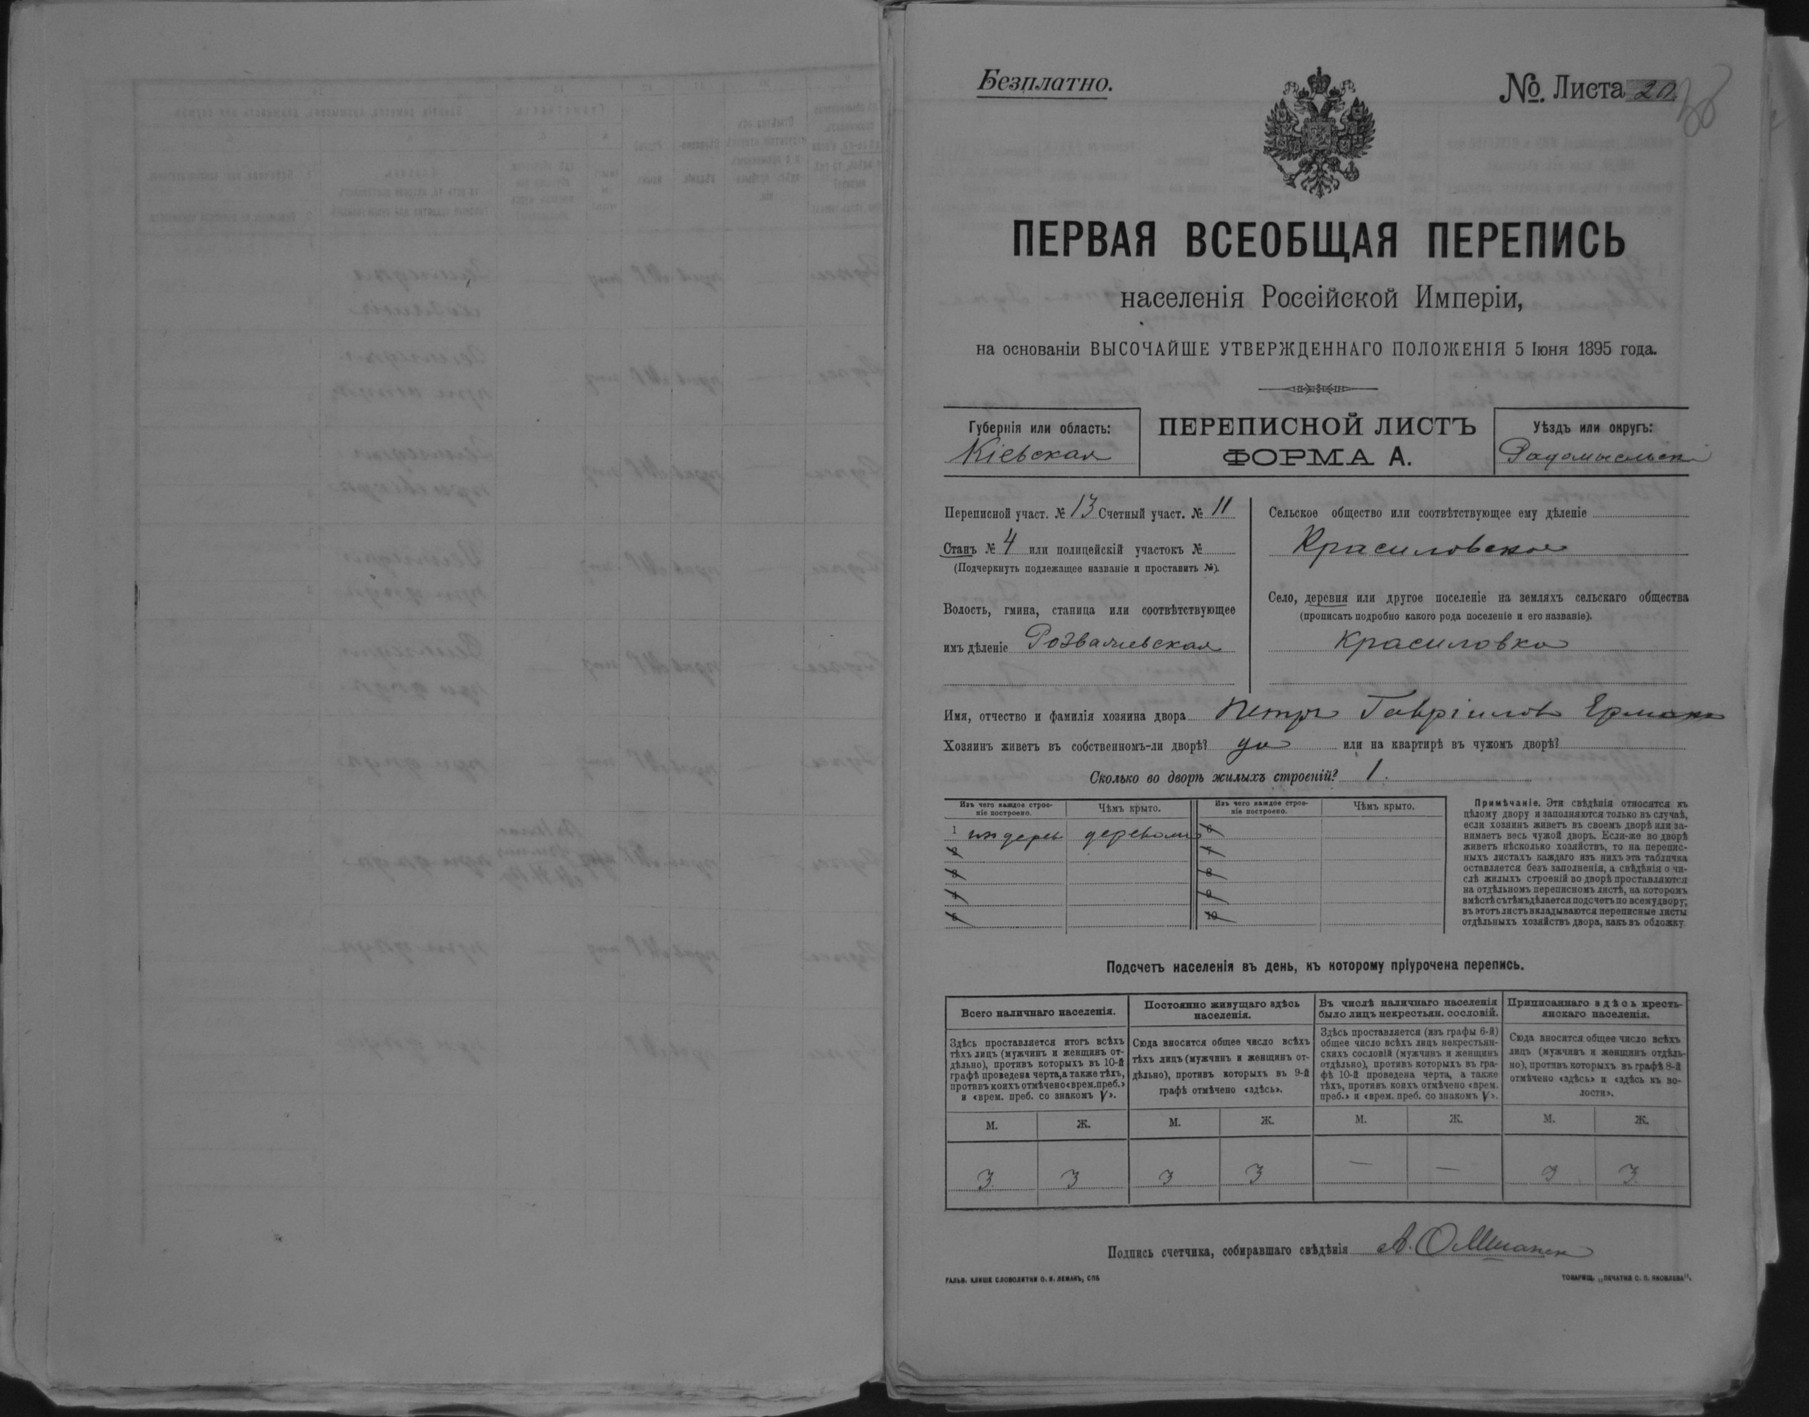 Безплатно.
№. Листа 20
38
ПЕРВАЯ ВСЕОБЩАЯ ПЕРЕПИСЬ
населенія Россійской Имперіи,
на основаніи ВЫСОЧАЙШЕ УТВЕРЖДЕННАГО ПОЛОЖЕНІЯ 5 Іюня 1895 года.
Губернія или область:
Кіевская
ПЕРЕПИСНОЙ ЛИСТЪ
ФОРМА А.
Уѣздъ или округъ:
Радомысльск
Переписной участ. № 13 Счетный участ. № 11
Станъ № 4 или полицейскій участокъ №
(Подчеркнуть подлежащее названіе и проставить №).
Волость, гмина, станица или соотвѣтствующее
имъ дѣленіе Розважевская
Сельское общество или соотвѣтствующее ему дѣленіе
Красиловское
Село, деревня или другое поселеніе на земляхъ сельскаго общества
(прописать подробно какого рода поселеніе и его названіе).
Красиловка
Имя, отчество и фамилія хозяина двора Петръ Гавріиловъ Ермакъ
Хозяинъ живетъ въ собственномъ-ли дворѣ? да или на квартирѣ въ чужомъ дворѣ?
Сколько во дворѣ жилыхъ строеній? 1.
Изъ чего каждое строе-
ніе построено.
Чѣмъ крыто.
Изъ чего каждое строе-
ніе построено.
Чѣмъ крыто.
1 изъ дерев деревом 6
2 7
3 8
4 9
5 10
Примѣчаніе. Эти свѣдѣнія относятся къ
цѣлому двору и заполняются только въ случаѣ,
если хозяинъ живетъ въ своемъ дворѣ или за-
нимаетъ весь чужой дворъ. Если-же во дворѣ
живетъ нѣсколько хозяйствъ, то на перепис-
ныхъ листахъ каждаго изъ нихъ эта табличка
оставляется безъ заполненія, а свѣдѣнія о чи-
слѣ жилыхъ строеній во дворѣ проставляются
на отдѣльномъ переписномъ листѣ, на которомъ
вмѣстѣ съ тѣмъ дѣлается подсчетъ по всему двору;
въ этотъ листъ вкладываются переписные листы
отдѣльныхъ хозяйствъ двора, какъ въ обложку
Подсчетъ населенія въ день, къ которому пріурочена перепись.
Всего наличнаго населенія.
Здѣсь проставляется итогъ всѣхъ
тѣхъ лицъ (мужчинъ и женщинъ от-
дѣльно), противъ которыхъ въ 10-й
графѣ проведена черта, а также тѣхъ,
противъ коихъ отмѣчено «врем. преб.»
и «врем. преб. со знакомъ V».
Постоянно живущаго здѣсь
населенія.
Сюда вносится общее число всѣхъ
тѣхъ лицъ (мужчинъ и женщинъ от-
дѣльно), противъ которыхъ въ 9-й
графѣ отмѣчено «здѣсь».
Въ числѣ наличнаго населенія
было лицъ некрестьян. сословій.
Здѣсь проставляется (изъ графы 6-й)
общее число всѣхъ лицъ некрестьян-
скихъ сословій (мужчинъ и женщинъ
отдѣльно), противъ которыхъ въ гра-
фѣ 10-й проведена черта, а также
тѣхъ, противъ коихъ отмѣчено «врем.
преб.» и «врем. преб. со знакомъ V».
Приписаннаго здѣсь кресть-
янскаго населенія.
Сюда вносится общее число всѣхъ
лицъ (мужчинъ и женщинъ отдѣль-
но), противъ которыхъ въ графѣ 8-й
отмѣчено «здѣсь» и «здѣсь въ во-
лости».
М. Ж. М. Ж. М. Ж. М. Ж.
3 3 3 3 — — 3 3
Подпись счетчика, собиравшаго свѣдѣнія А.
ГАЛЬВ. КЛИШЕ СЛОВОЛИТНИ О. И. ЛЕМАНЪ, СПБ
ТОВАРИЩ. „ПЕЧАТНЯ С. П. ЯКОВЛЕВА".